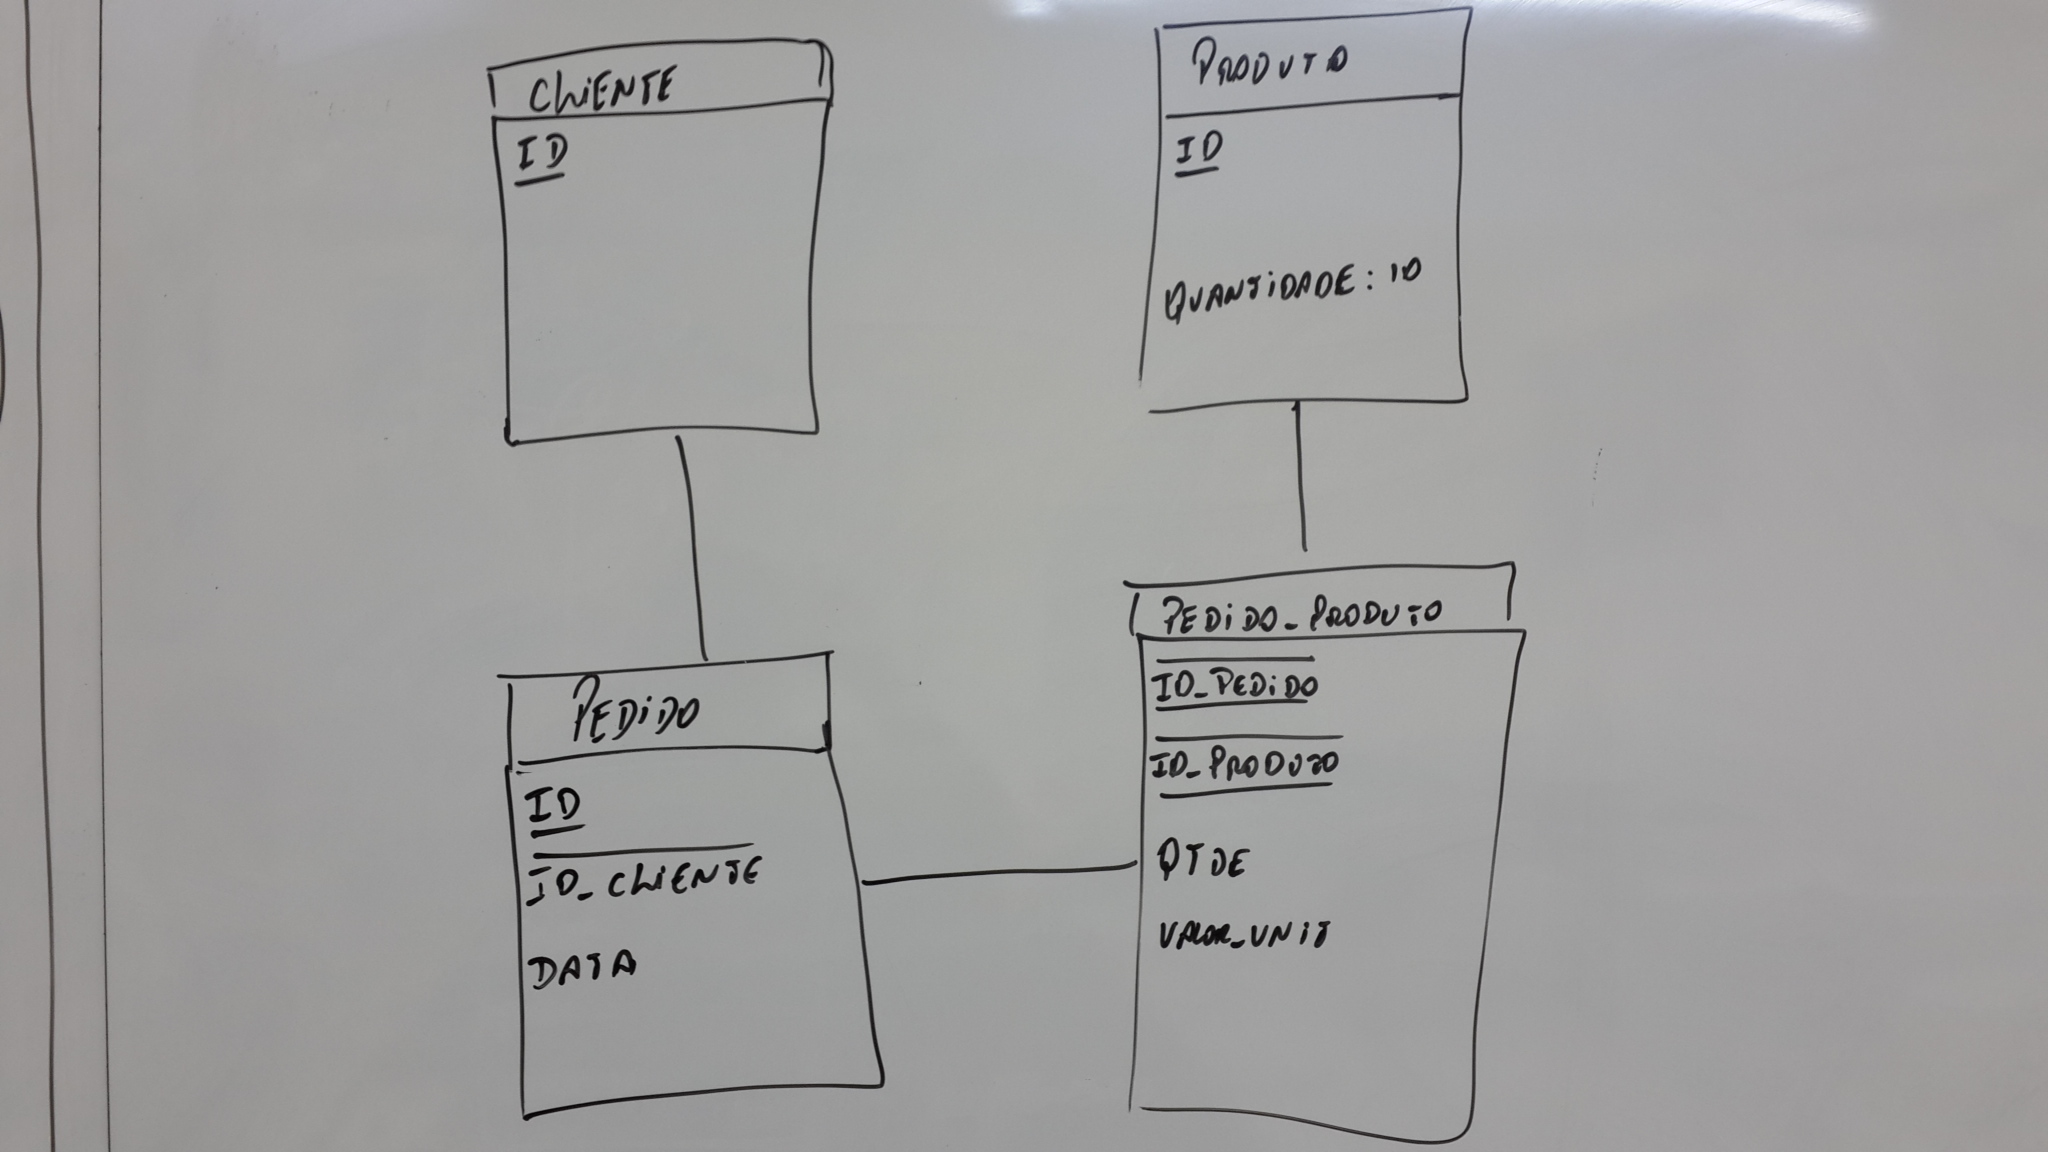 CLIENTE
ID
PRODUTO
ID
QUANTIDADE: 10
PEDIDO
ID
ID_CLIENTE
DATA
PEDIDO_PRODUTO
ID_PEDIDO
ID_PRODUTO
QTDE
VALOR_UNIT